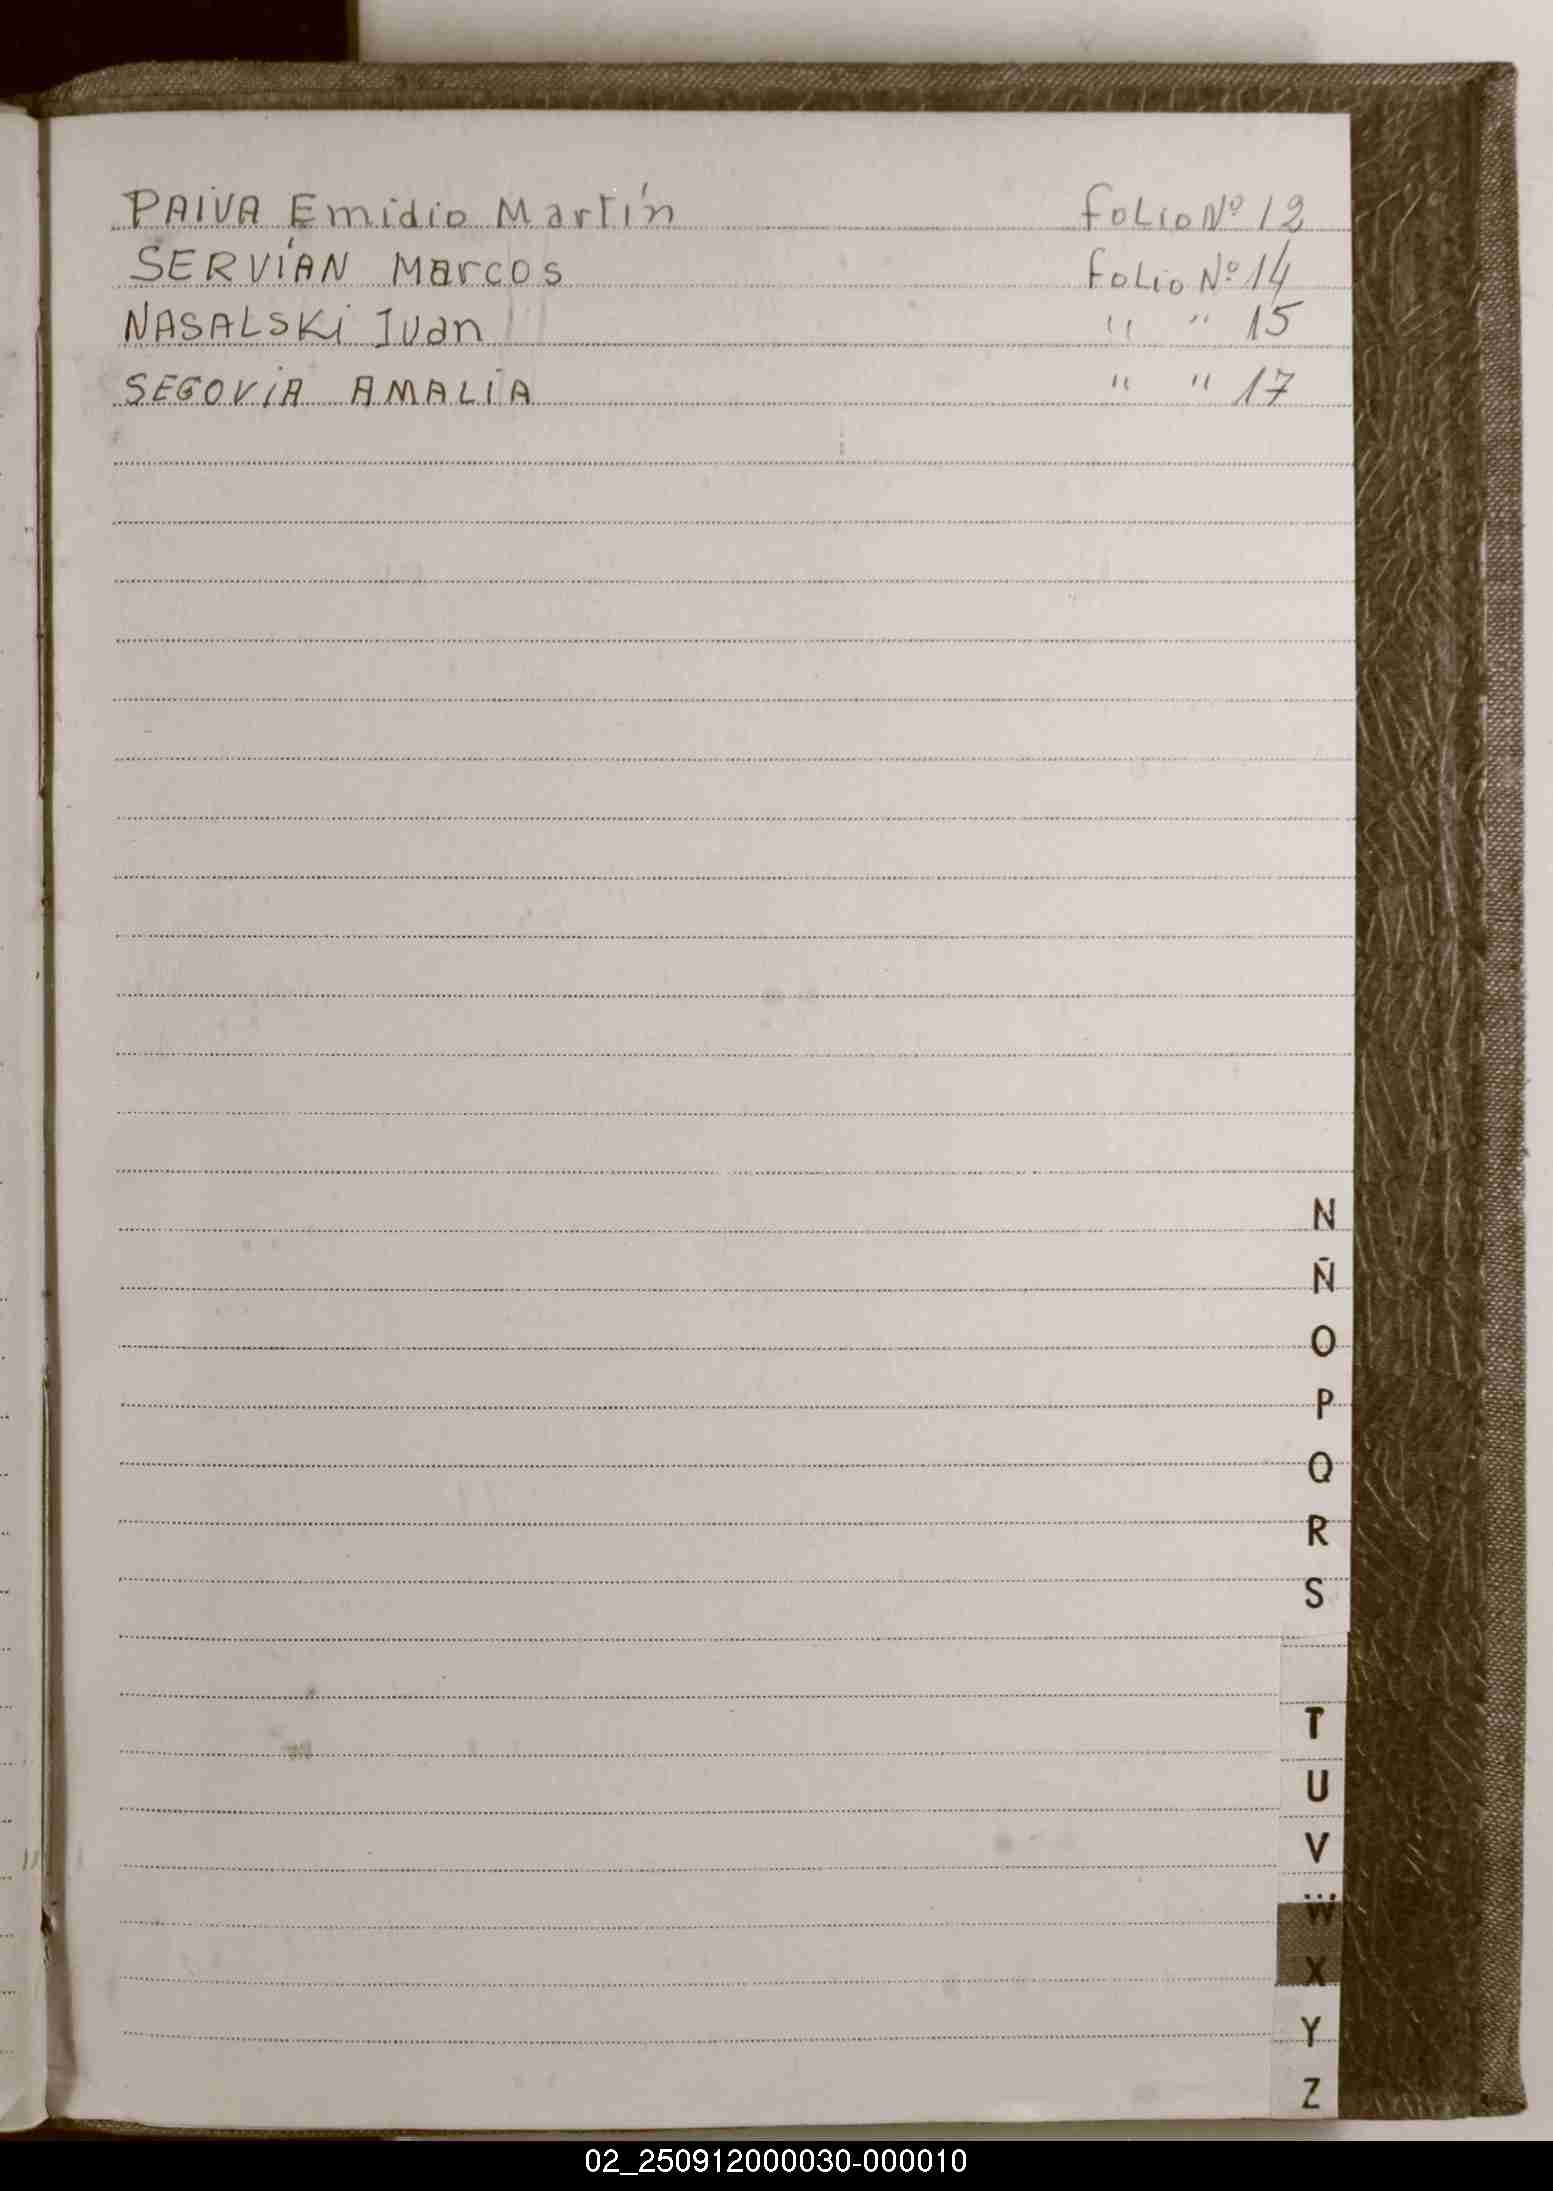 PAIVA Emidio Martín FOLIO Nº 12
SERVÍAN Marcos FOLIO Nº 14
NASALSKi Iván " " 15
SEGOVIA AMALIA " " 17
N
Ñ
O
P
Q
R
S
T
U
V
W
X
Y
Z
02_250912000030-000010